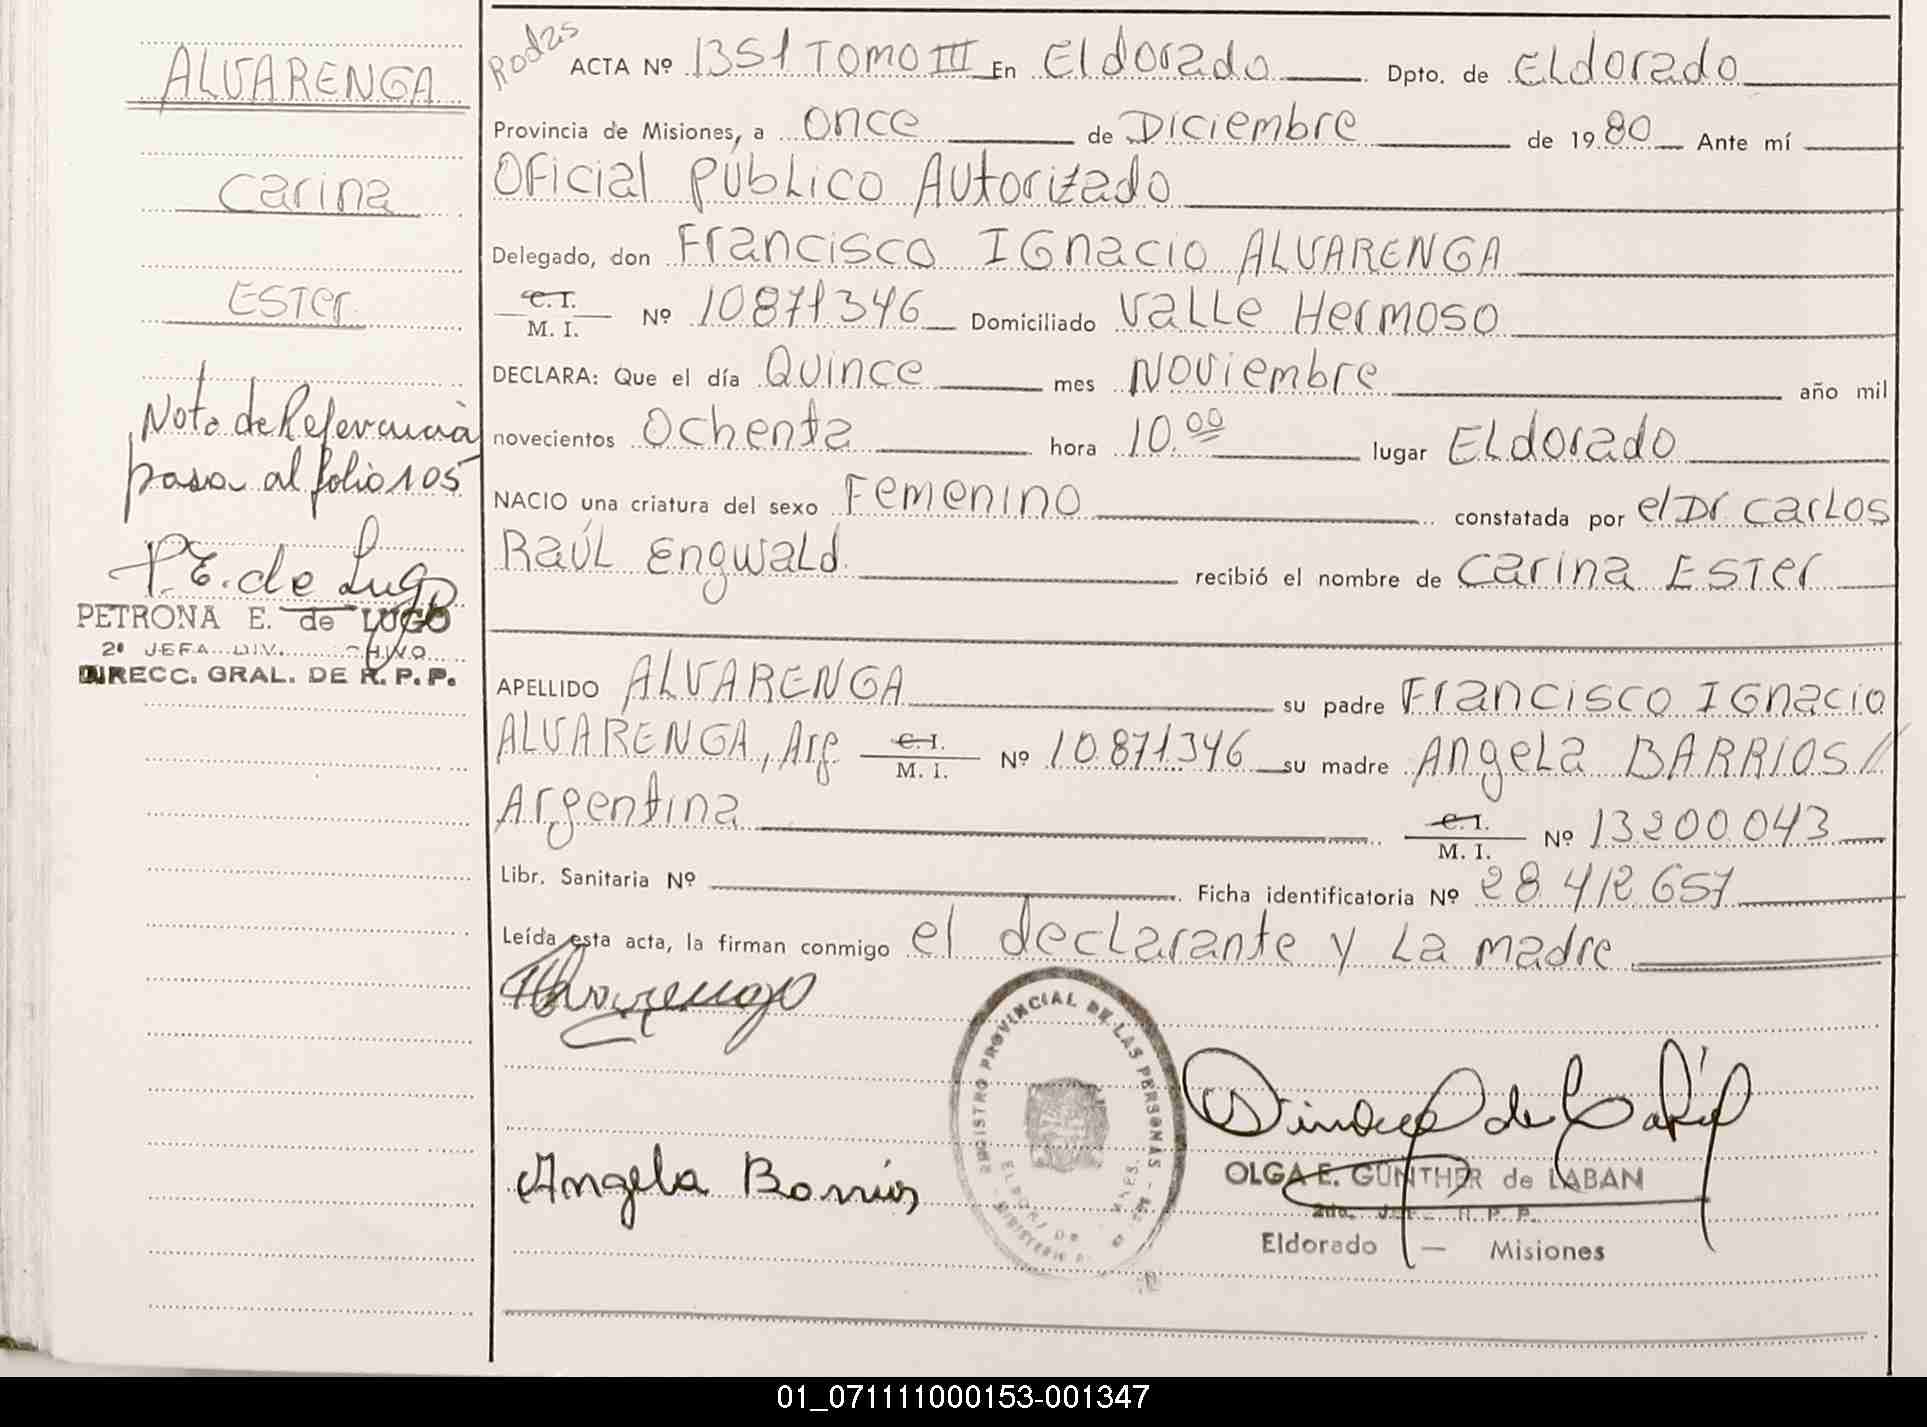 ALVARENGA
Carina
ESTer
Nota de Referencia
pasa al folio 105
P.E. de Lugo
PETRONA E. de LUGO
2ª JEFA DIV. ARCHIVO
DIRECC. GRAL. DE R. P. P.
Rodas
ACTA Nº 1351 TOMO III En Eldorado Dpto. de Eldorado
Provincia de Misiones, a once de Diciembre de 1980 Ante mí
Oficial Público Autorizado
Delegado, don Francisco Ignacio ALVARENGA
C. I.
M. I. Nº 10871346 Domiciliado Valle Hermoso
DECLARA: Que el día Quince mes Noviembre año mil
novecientos Ochenta hora 10.00 lugar Eldorado
NACIO una criatura del sexo Femenino constatada por el Dr Carlos
Raúl Engwald recibió el nombre de Carina Ester
APELLIDO ALVARENGA su padre Francisco Ignacio
ALVARENGA, Arg C. I. M. I. Nº 10.871.346 su madre Angela BARRIOS//
Argentina C. I. M. I. Nº 13200.043
Libr. Sanitaria Nº Ficha identificatoria Nº 28.412.657
Leída esta acta, la firman conmigo el declarante y La madre
Alvarenga
REGISTRO PROVINCIAL DE LAS PERSONAS
Angela Barrios
OLGA E. GUNTHER de LABAN
2do. JEFE R. P. P.
Eldorado — Misiones
01_071111000153-001347